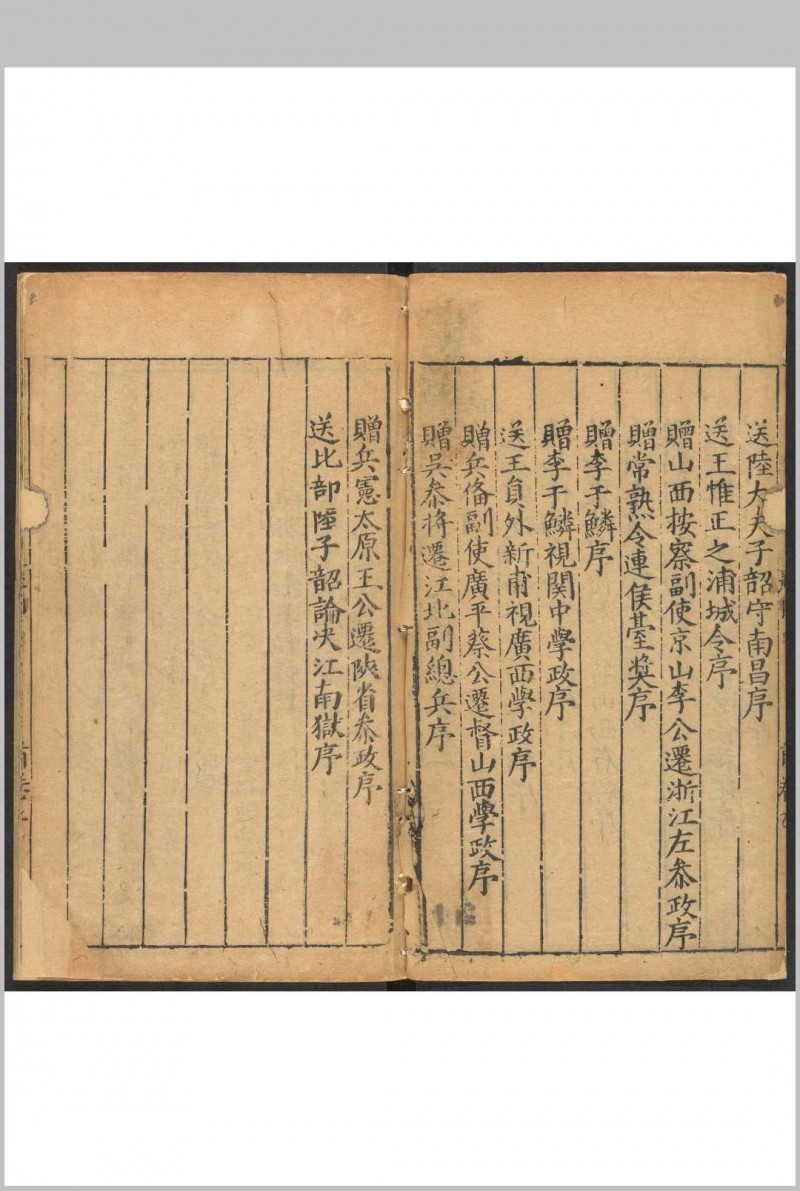 送陸大夫子韶守南昌序
送王惟正之浦城令序
贈山西按察副使京山李公遷浙江左叅政序
贈常熟令連侯臺奬序
贈李于鱗序
贈李于鱗視関中學政序
送王員外新甫視廣西學政序
贈兵俻副使廣平蔡公遷督山西學政序
贈吳叅將遷江北副總兵序
贈兵憲太原王公遷陝省叅政序
送比部陸子韶論决江南獄序